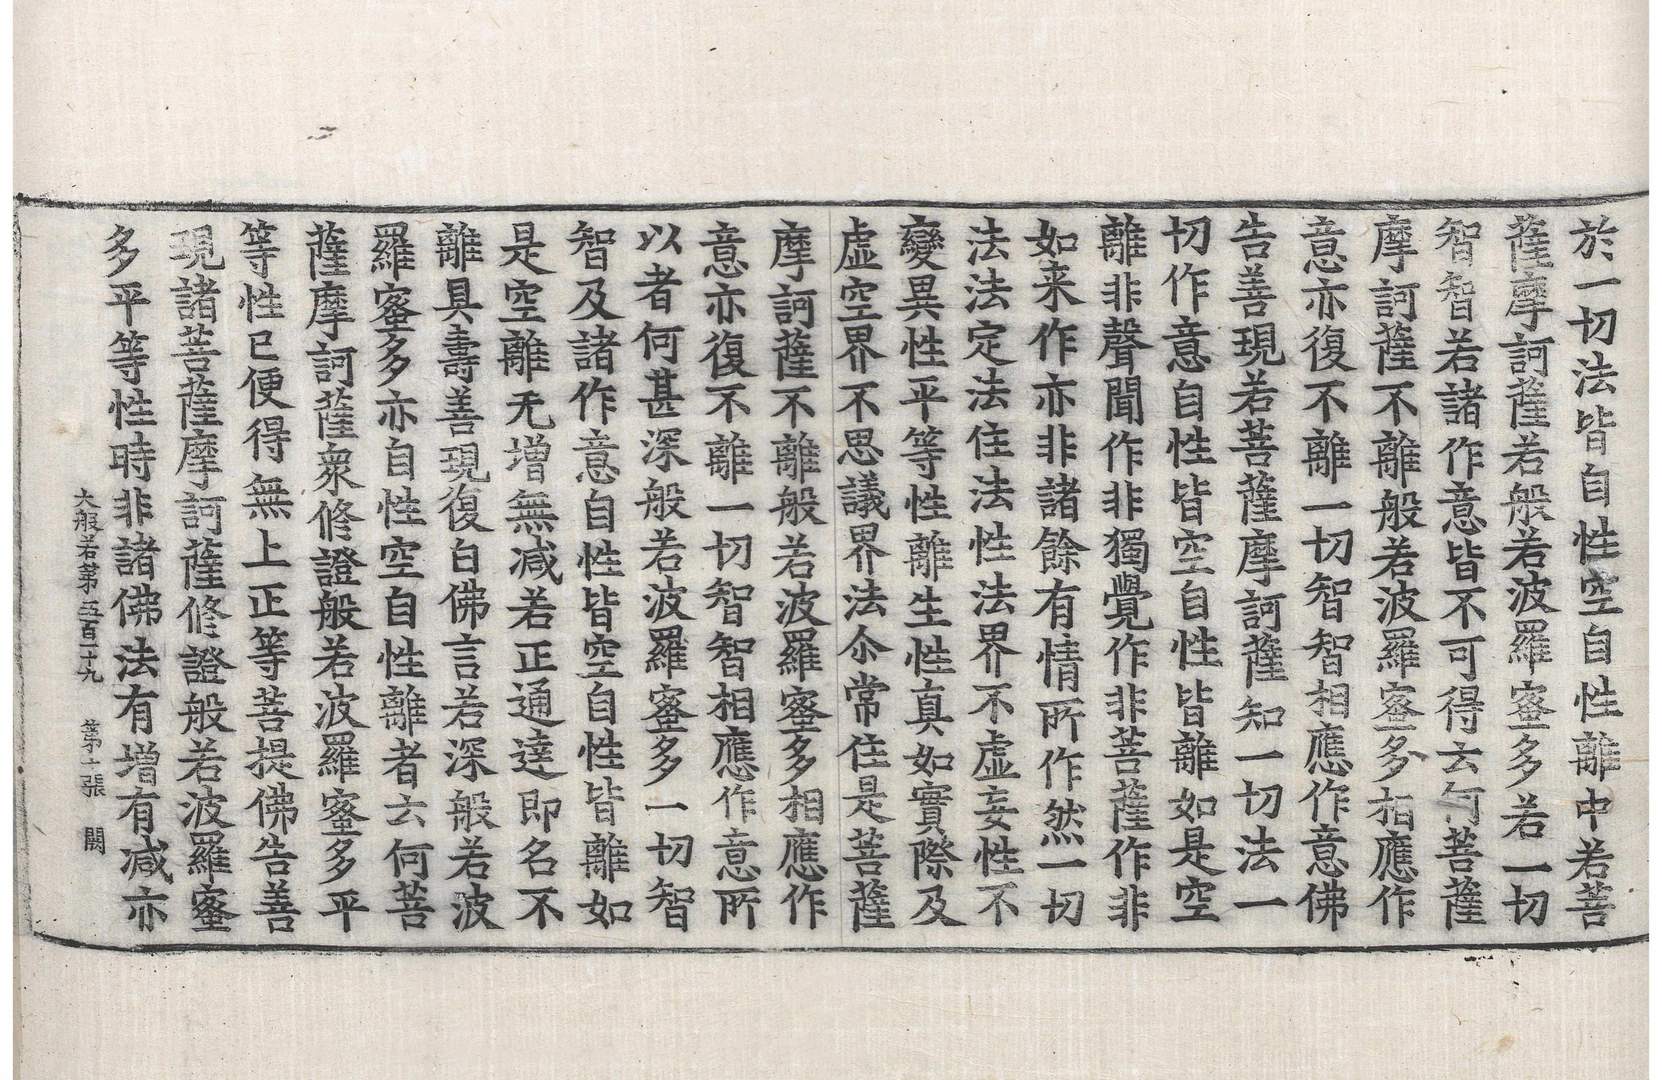 於一切法皆自性空自性離中若菩
薩摩訶薩若般若波羅蜜多若一切
智智若諸作意皆不可得云何菩薩
摩訶薩不離般若波羅蜜多相應作
意亦復不離一切智智相應作意佛
告善現若菩薩摩訶薩知一切法一
切作意自性皆空自性皆離如是空
離非聲聞作非獨覺作非菩薩作非
如来作亦非諸餘有情所作然一切
法法定法住法性法界不虛妄性不
變異性平等性離生性真如實際及
虛空界不思議界法尒常住是菩薩
摩訶薩不離般若波羅蜜多相應作
意亦復不離一切智智相應作意所
以者何甚深般若波羅蜜多一切智
智及諸作意自性皆空自性皆離如
是空離无增無减若正通達即名不
離具壽善現復白佛言若深般若波
羅蜜多亦自性空自性離者云何菩
薩摩訶薩衆修證般若波羅蜜多平
等性已便得無上正等菩提佛告善
現諸菩薩摩訶薩修證般若波羅蜜
多平等性時非諸佛法有增有减亦
大般若第五百二十九 第十張 闕